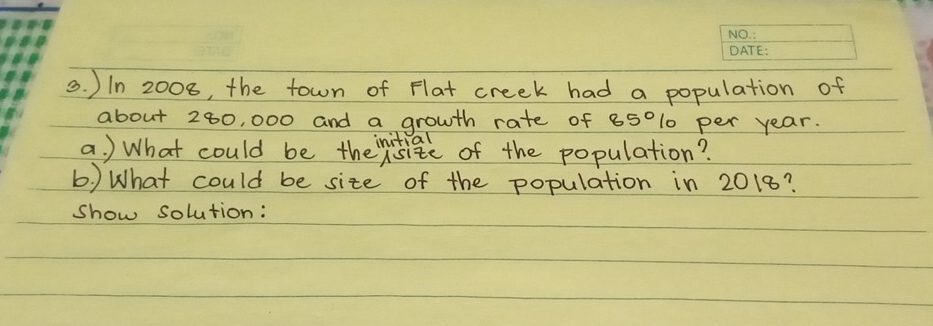 NO.:
DATE:
3.) In 2008, the town of Flat creek had a population of
about 280,000 and a growth rate of 85% per year.
a.) What could be the initial size of the population?
b.) What could be size of the population in 2018?
Show Solution: